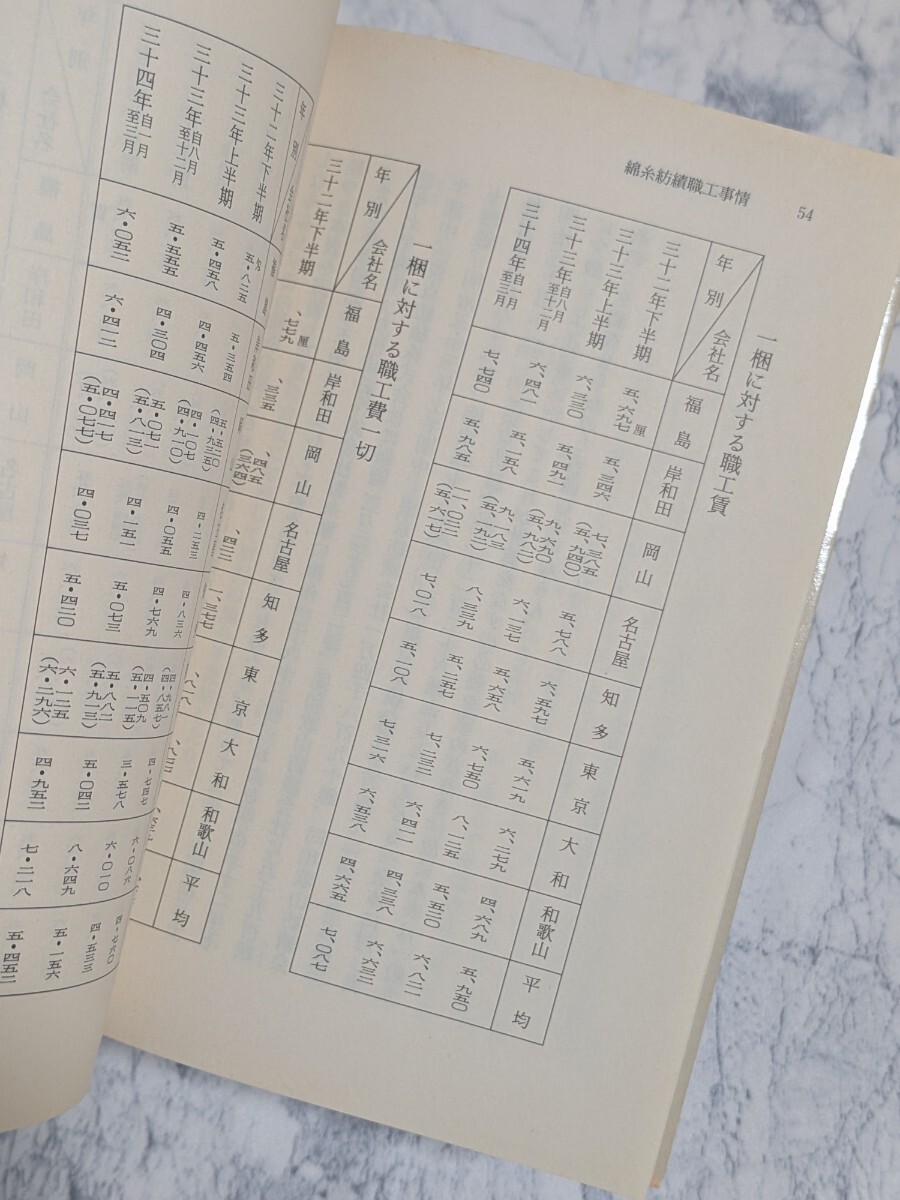 綿糸紡績職工事情
54
一梱に対する職工賃
年別 会社名 福島 岸和田 岡山 名古屋 知多 東京 大和 和歌山 平均
三十二年下半期 五、六九七厘 五、三四六 七、三八五 (五、九四〇) 五、七八八 六、五九七 五、六一九 六、二七九 四、六八九 五、九五〇
三十三年上半期 六、三三〇 五、四九一 九、六九〇 (五、九八二) 六、一三七 五、六五八 六、七五〇 八、二二五 五、五二〇 六、八二一
三十三年自八月至十二月 六、四八一 五、一五八 九、一八三 (五、九二一) 八、三三九 五、二五七 七、二三二 六、四二一 四、三三八 六、六三二
三十四年自一月至三月 七、七四〇 五、九八五 一一、〇三二 (五、六一七) 七、〇二八 五、一〇八 七、三一六 六、五三八 四、六六五 七、〇八七
一梱に対する職工費一切
年別 会社名 福島 岸和田 岡山 名古屋 知多 東京 大和 和歌山 平均
三十二年下半期 、七七九厘 、三三五 、四八五 (三六四) 、四三三 一、三七七 、八二八
年別
三十二年下半期 五・八二五 五・三五四 四・五二〇 (五・九三五) 四・二五三 四・八三六 四・九八一 (四・八五七) 四・七四七 六・〇八六 四・七六〇
三十三年上半期 五・四五八 四・四五六 四・一〇七 (四・九一〇) 四・〇五五 四・七六九 四・五〇九 (五・一一五) 三・五七八 六・〇一〇 四・五三三
三十三年自八月至十二月 五・五五五 四・三〇四 五・〇七一 (五・八一三) 四・一五一 五・〇七三 五・八八二 (五・九一三) 五・〇四二 八・六四九 五・一五六
三十四年自一月至三月 六・〇五二 六・四一二 四・四一七 (五・〇七七) 四・〇三七 五・四二〇 六・一二五 (六・二九六) 四・九五二 七・二一八 五・四五二